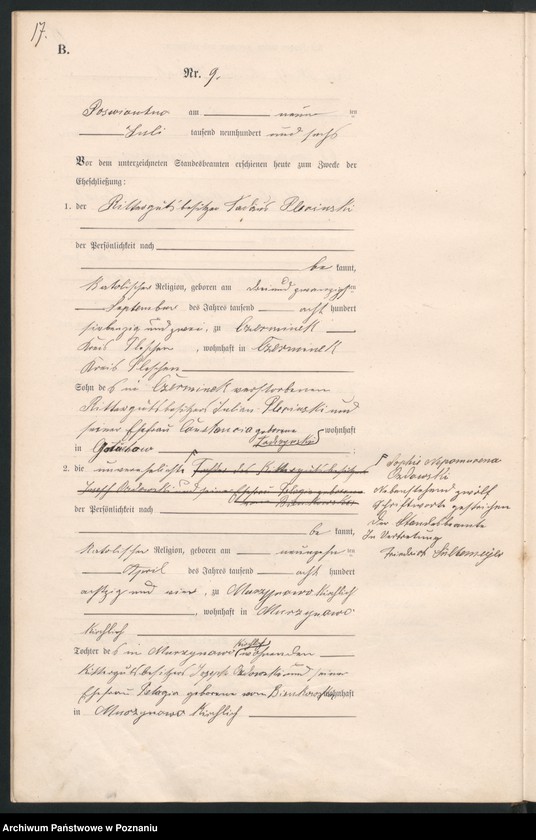 17.
B.
Nr. 9.
am neun ten
Juli tausend neunhundert und sechs
Vor dem unterzeichneten Standesbeamten erschienen heute zum Zwecke der
Eheschließung:
1. der Rittergutsbesitzer
der Persönlichkeit nach
be kannt,
katolischer Religion, geboren am dreiundzwanzigsten
September des Jahres tausend acht hundert
siebenzig und zwei, zu Czerminek
Kreis Pleschen, wohnhaft in Czerminek
Kreis Pleschen
Sohn des in Czerminek verstorbenen
Rittergutsbesitzers Julian und
seiner Ehefrau Constancia geborene
wohnhaft
in
2. die unverehelichte Tochter des Rittergutsbesitzers
Joseph und seiner Ehefrau Pelagia geborene
von Bienkowski
der Persönlichkeit nach
be kannt,
katolischer Religion, geboren am neunzehn ten
April des Jahres tausend acht hundert
achtzig und vier, zu Murzynowo kirchlich
, wohnhaft in Murzynowo
kirchlich
Tochter des in Murzynowo kirchlich wohnenden
Rittergutsbesitzers Joseph und seiner
Ehefrau Pelagia geborene von Bienkowski wohnhaft
in Murzynowo kirchlich
Sophie Nepomucena
Nebenstehend zwölf
Schriftworte gestrichen
Der Standesbeamte
In Vertretung
Friedrich
Archiwum Państwowe w Poznaniu